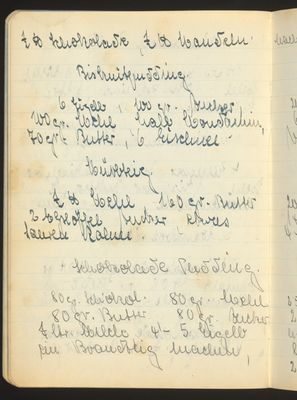 ℔ Schokolade ℔ Mandeln
Biskuitpudding.
6 Eier, 100 gr. Zucker
100 gr. Mehl
70 gr. Butter, 6
Mürbteig.
℔ Mehl 160 gr. Butter
2 Esslöffel Zucker etwas
sauren Rahm
Schokolade Pudding.
80 gr. Schokol. 80 gr. Mehl
80 gr. Butter 80 gr. Zucker
Ltr. Milch 4-5 Eigelb
ein Brandteig machen,